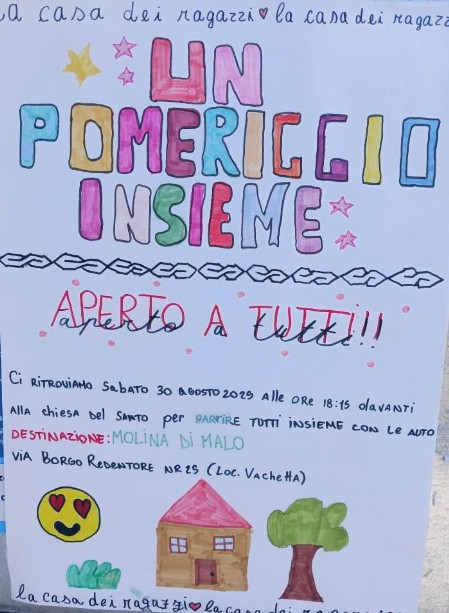 La casa dei ragazzi♥la casa dei ragazz
UN
POMERIGGIO
INSIEME
APERTO A TUTTI!!!
aperto a tutti
Ci RITROVIAMO SABATO 30 AGOSTO 2025 Alle ORE 18:15 davanti
alla chiesa del SANTO per PARTIRE TUTTI INSIEME CON LE AUTO
DESTINAZIONE: MOLINA Di MALO
VIA BORGO REDENTORE NR 25 (Loc. VachettA)
la casa dei ragazzi♥la casa dei